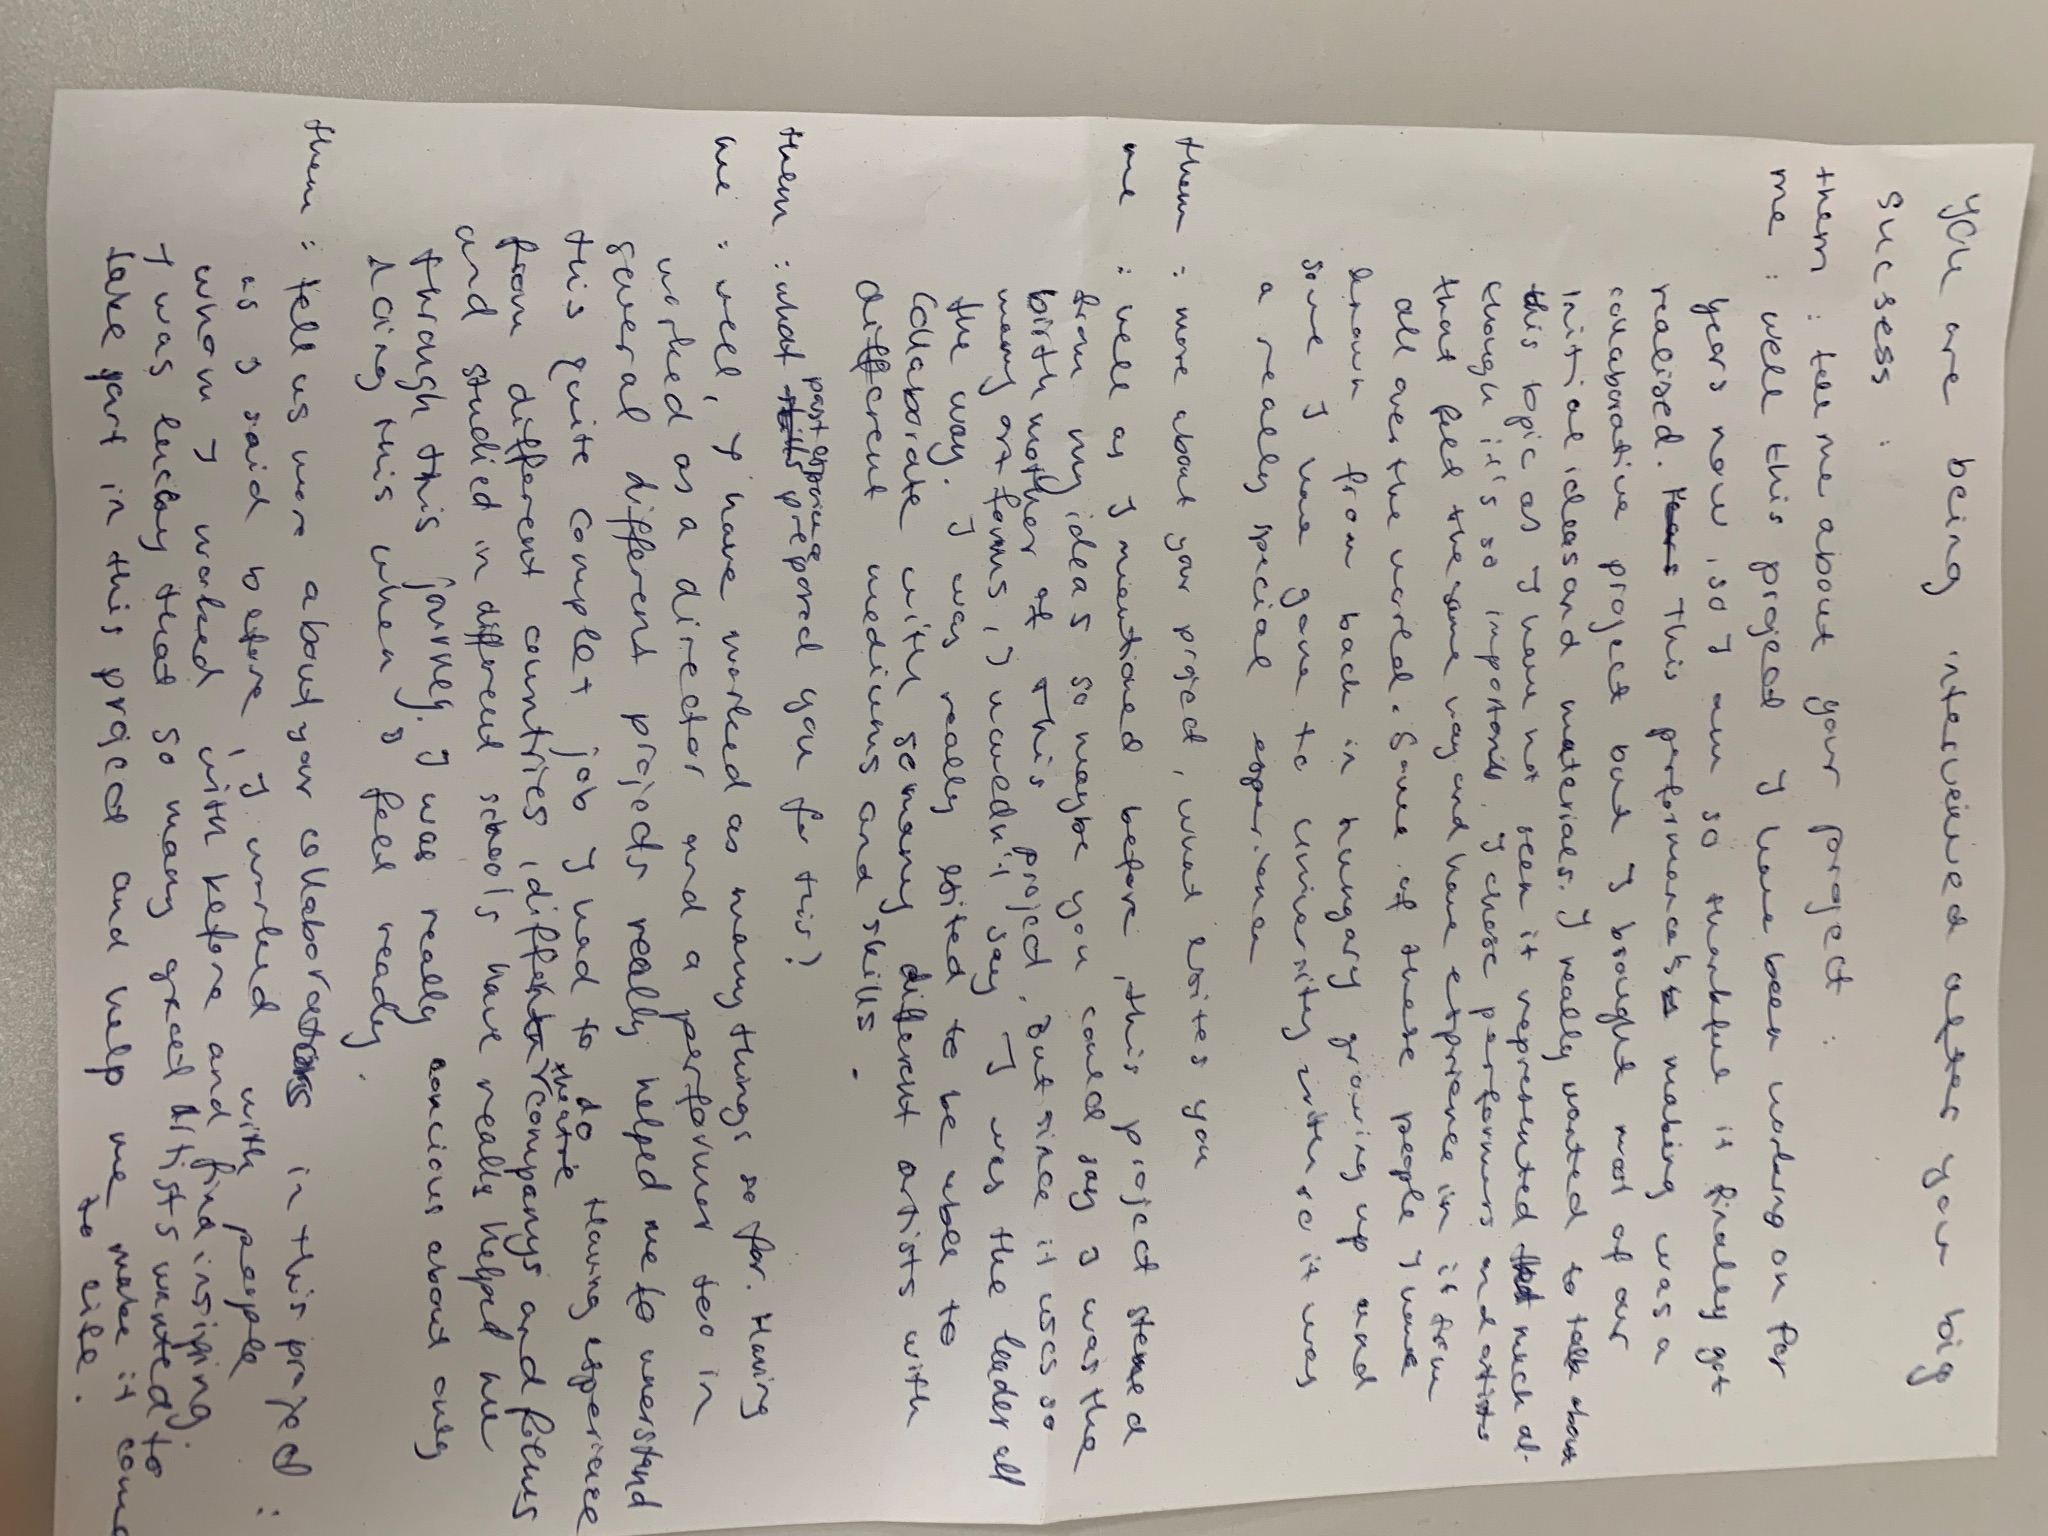 you are being interveiwed after your big
sucsess :
them : tell me about your porject :
me : well this project I have been working on for
years now, so I am so thankful it finally got
realised. This performance's making was a
collaborative project but I brought most of our
initial ideas and materials. I really wanted to talk about
this topic as I have not seen it represented that much al-
though it's so important. I chose performers and artists
that feel the same way and have exprience in it from
all over the world. Some of these people I have
known from back in hungary growing up and
some I have gone to university with so it was
a really special experience
them : more about your project, what exites you
me : well as I mentioned before, this project
from my ideas so maybe you could say I was the
birthmother of this project, but since it uses so
many art forms, I wouldn't say I was the leader all
the way. I was really exited to be able to
collaborate with so many different artists with
different mediums and skills.
them : what past exprience prepared you for this?
me : well, I have worked as many things so far. Having
worked as a director and a performer too in
several different projects really helped me to understand
this quite complex job I had to do. Having experience
from different countries, different theatre companys and films
and studied in different schools have really helped me
through this journey. I was really concious about only
doing this when I feel ready.
them : tell us more about your collaborators in this project :
as I said before, I worked with people
whom I worked with before and find insipiring.
I was lucky that so many great artists wanted to
take part in this project and help me make it come
to life.